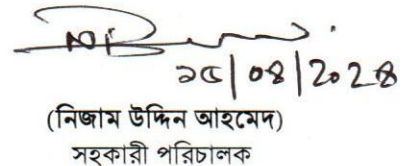 ১৫|০৪|২০২৪
(নিজাম উদ্দিন আহমেদ)
সহকারী পরিচালক